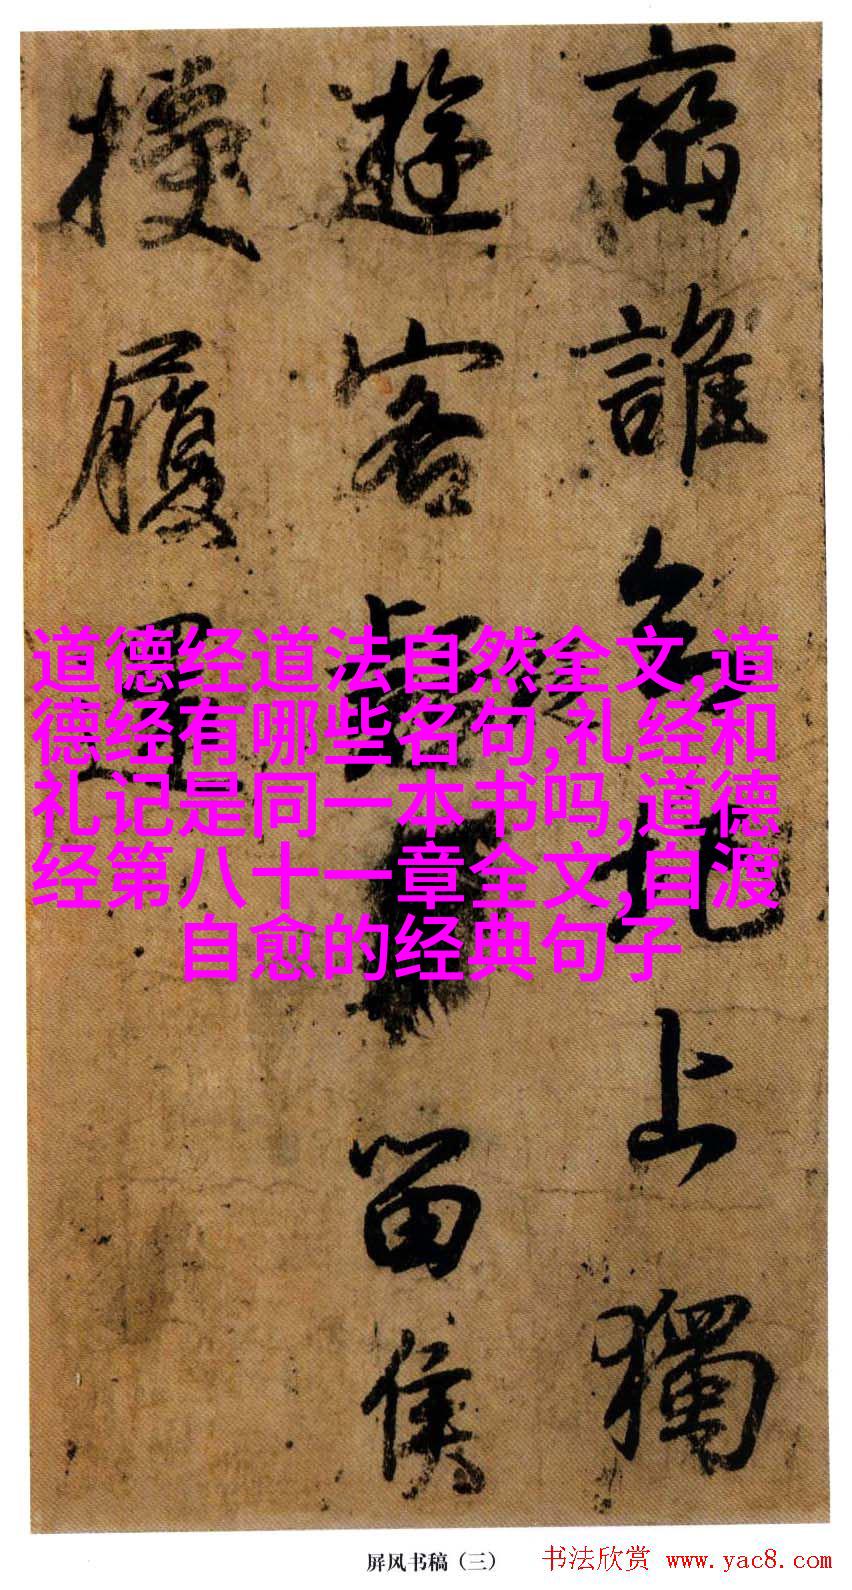 誰 上獨
遊客 留侯
履
道德经道法自然全文,道
德经有哪些名句,礼经和
礼记是同一本书吗,道德
经第八十一章全文,自渡
自愈的经典句子
屏风书稿（三） 书法欣赏 www.yac8.com